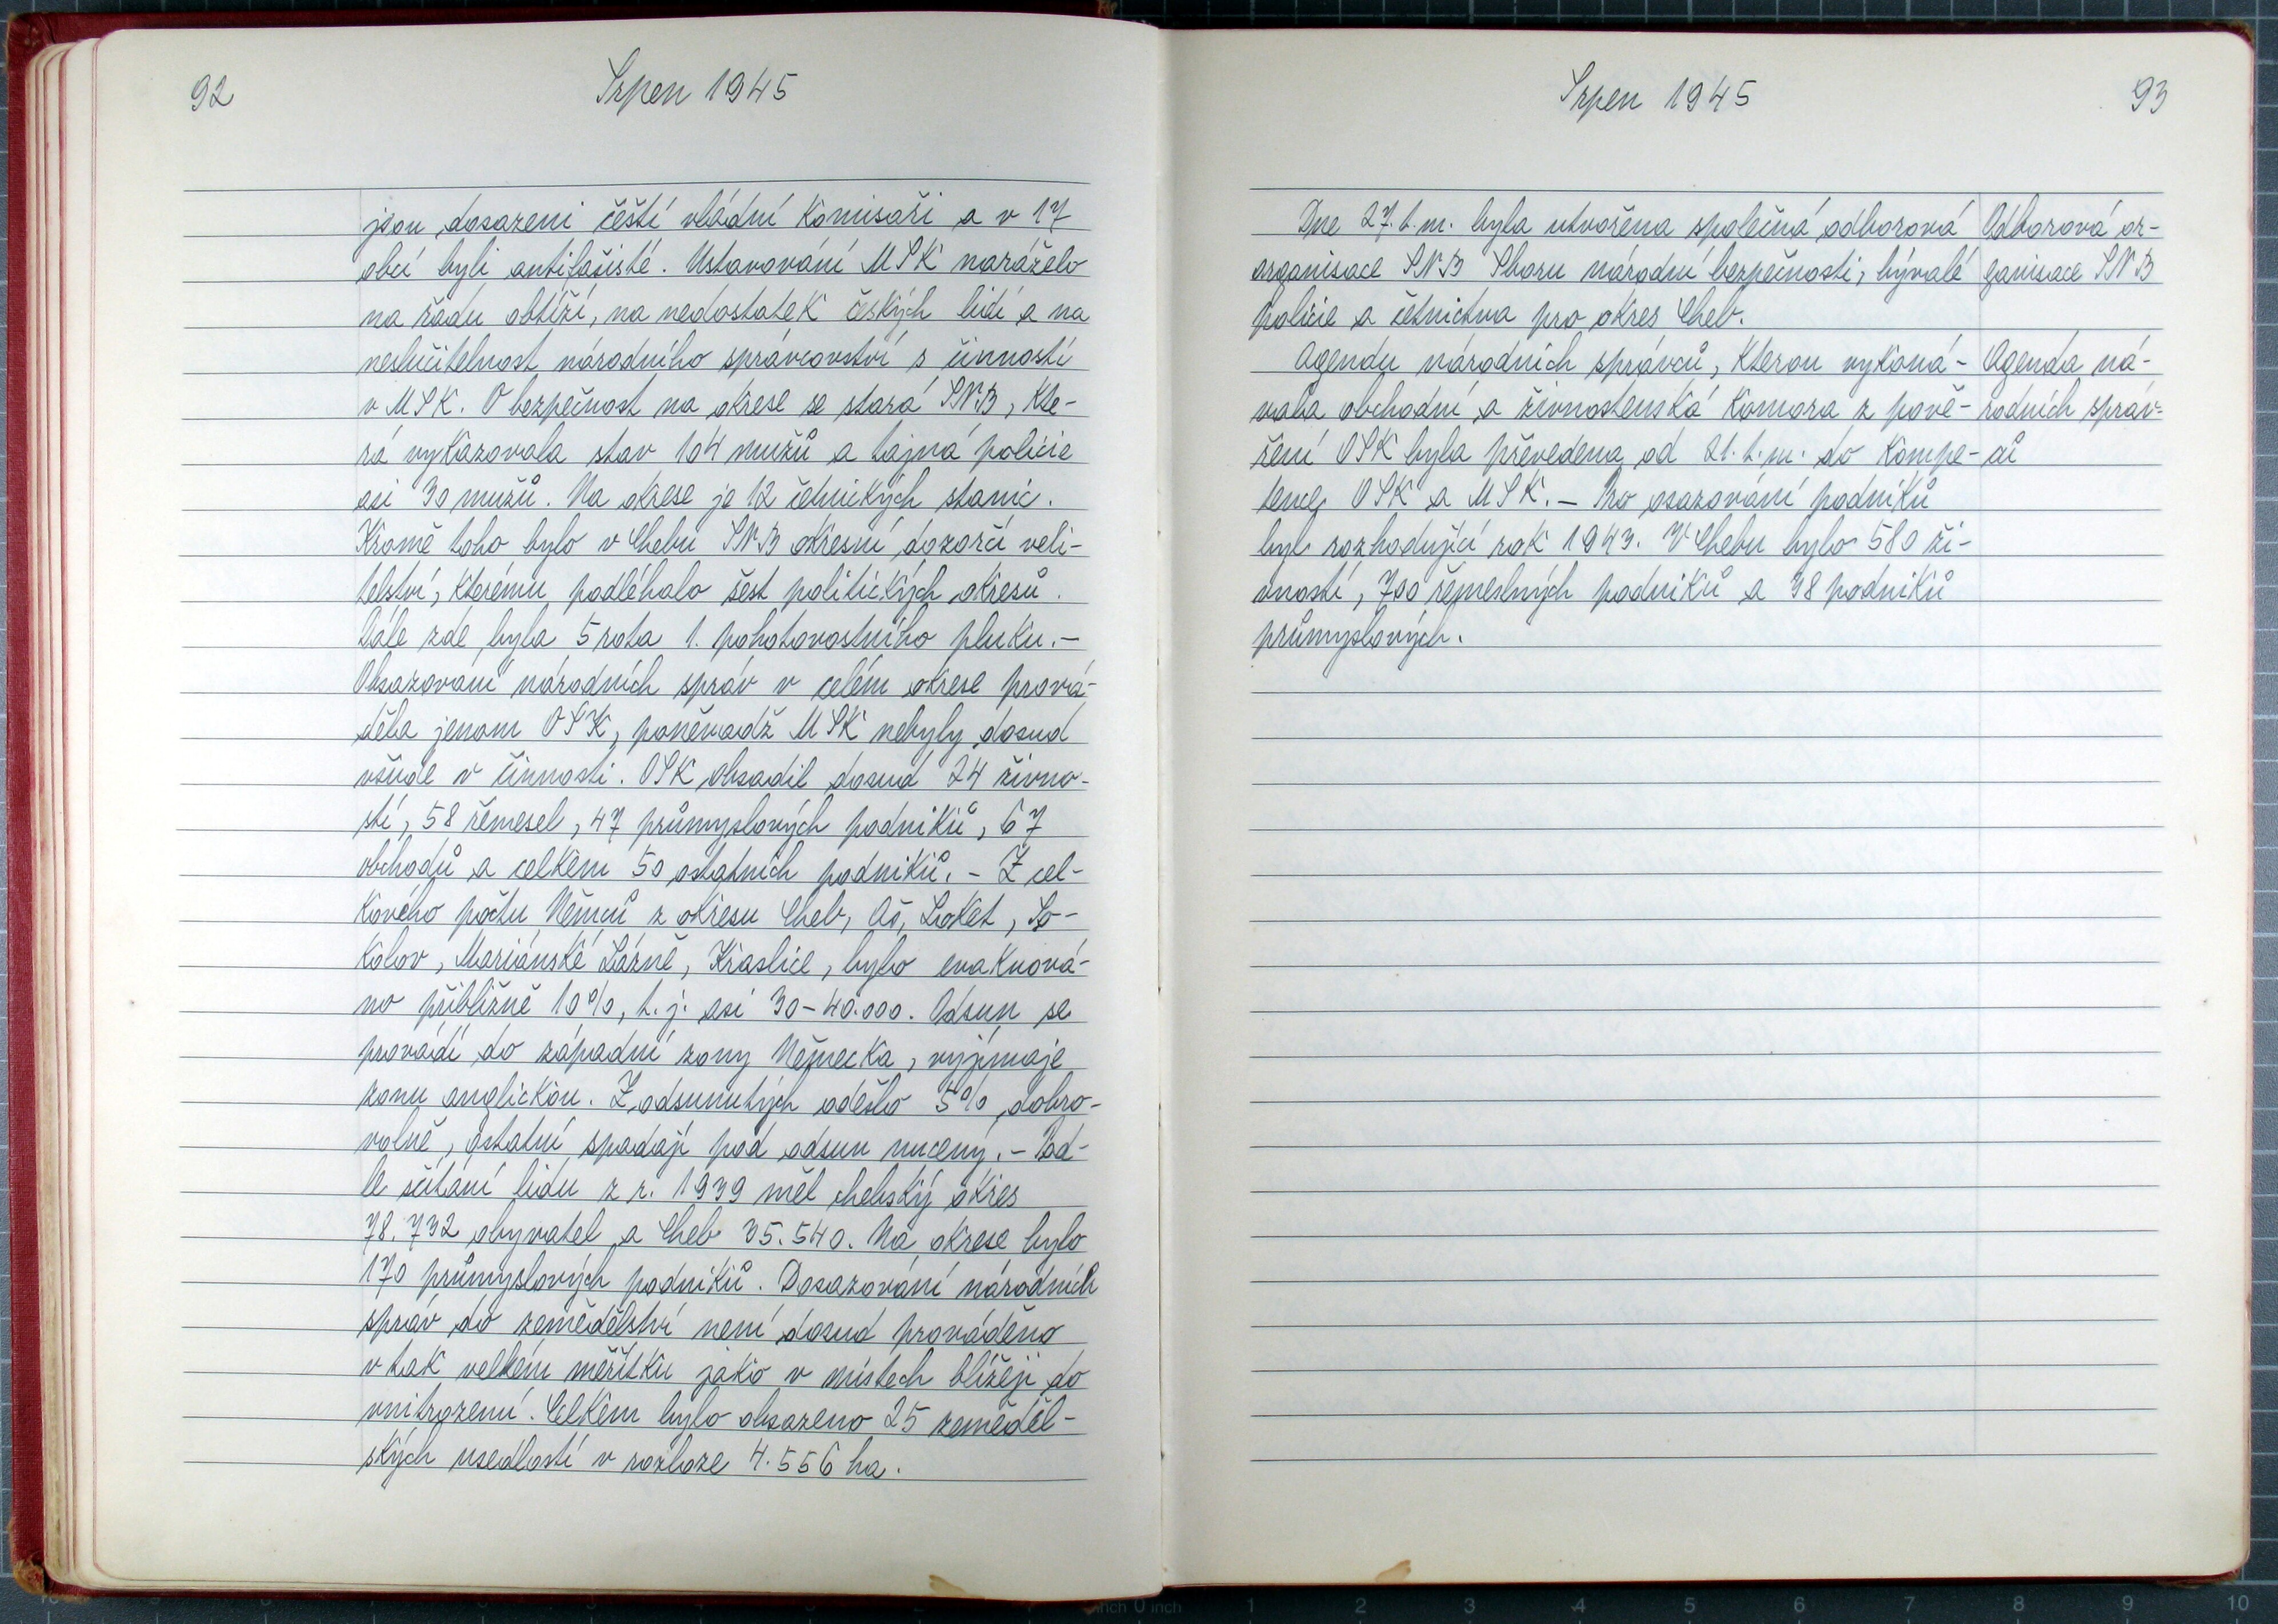 92
Srpen 1945
jsou dosazeni čeští vládní komisaři a v 17
obcí byli antifašisté. Ustavování MSK naráželo
na řadu obtíží, na nedostatek českých lidí a na
neslučitelnost národního správcovství s činností
v MSK. O bezpečnost na okrese se stará SNB, kte-
rá vykazovala stav 164 mužů a tajná policie
asi 30 mužů. Na okrese je 12 četnických stanic.
Kromě toho bylo v Chebu SNB okresní dozorčí veli-
telství, kterému podléhalo šest politických okresů.
Dále zde byla 5 rota 1. pohotovostního pluku. –
Obsazování národních správ v celém okrese prová-
děla jenom OSK, poněvadž MSK nebyly dosud
všude v činnosti. OSK obsadil dosud 24 živno-
stí, 58 řemesel, 47 průmyslových podniků, 67
obchodů a celkem 50 ostatních podniků. – Z cel-
kového počtu Němců z okresu Cheb, Aš, Loket, So-
kolov, Mariánské Lázně, Kraslice, bylo evakuová-
no přibližně 10%, t. j. asi 30–40.000. Odsun se
provádí do západní zony Německa, vyjímaje
zonu anglickou. Z odsunutých odešlo 5% dobro-
volně, ostatní spadají pod odsun nucený. – Pod-
le sčítání lidu z r. 1939 měl chebský okres
78.732 obyvatel a Cheb 35.540. Na okrese bylo
170 průmyslových podniků. Dosazování národních
správ do zemědělství není dosud prováděno
v tak velkém měřítku jako v místech blížeji do
vnitrozemí. Celkem bylo obsazeno 25 zeměděl-
ských usedlostí v rozloze 4.556 ha.
Srpen 1945
93
Dne 27. t. m. byla utvořena společná odborová
organisace SNB Sboru národní bezpečnosti, bývalé
policie a četnictva pro okres Cheb.
Agendu národních správců, kterou vykoná-
vala obchodní a živnostenská komora z pově-
ření OSK byla převedena od 21. t. m. do kompe-
tence OSK a MSK. – Pro osazování podniků
byl rozhodující rok 1943. V Chebu bylo 580 ži-
vností, 700 řemeslných podniků a 38 podniků
průmyslových.
Odborová or-
ganisace SNB
Agenda ná-
rodních správ-
ců